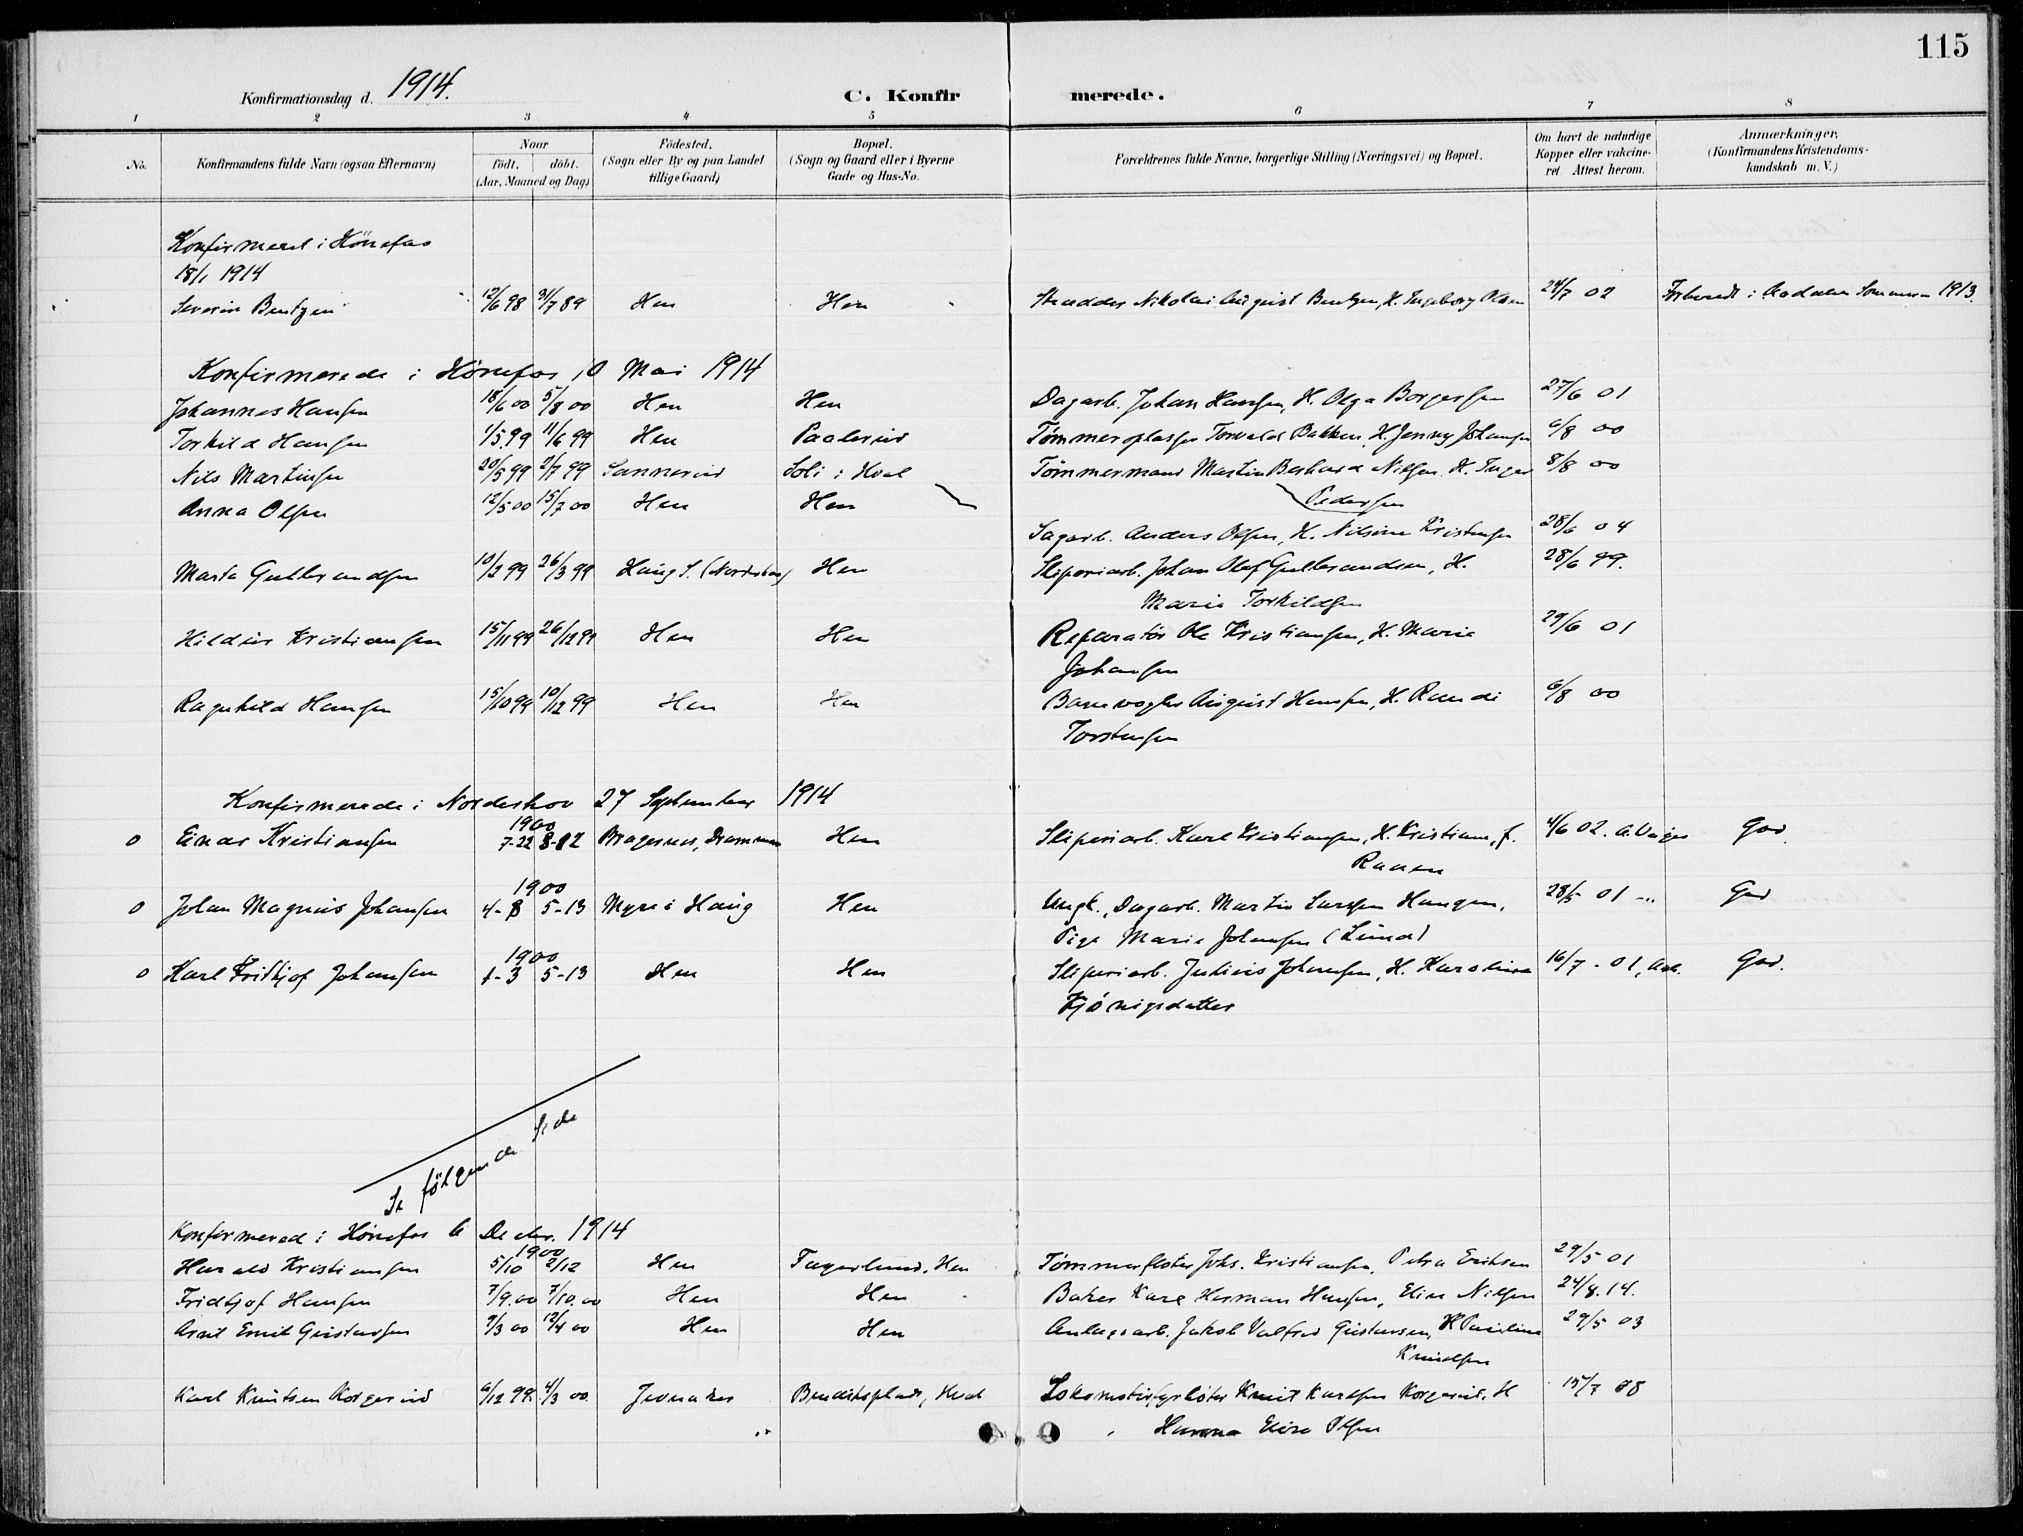 115
Konfirmationsdag d. 1914.
C. Konfirmerede.
1 2 3 4 5 6 7 8
No. Konfirmandens fulde Navn (ogsaa Efternavn) Naar født. døbt. (Aar, Maaned og Dag) Födested. (Sogn eller By og paa Landet tillige Gaard) Bopæl. (Sogn og Gaard eller i Byerne Gade og Hus-No. Forældrenes fulde Navne, borgerlige Stilling (Næringsvei) og Bopæl. Om havt de naturlige Kopper eller vakcineret Attest herom. Anmærkninger, (Konfirmandens Kristendomskundskab m. V.)
Konfirmeret i Hönefos
18/1 1914
Severin Bentzen 12/6 98 31/7 89 Hen Hen Skrædder Nikolai August Bentzen, H. Ingeborg Olsen 24/7 02 Forberedt i Aadalen Sommeren 1913.
Konfirmerede i Hönefos 10 Mai 1914
Johannes Hansen 18/6 00 5/8 00 Hen Hen Dagarb. Johan Hansen, H. Olga Borgersen 27/6 01
Torkild Hansen 1/5 99 11/6 99 Hen Paalerud Tømmeroplasser Torvald Bakken, H. Jenny Johansen 6/8 00
Nils Martinsen 20/5 99 2/7 99 Sannerud Soli i Hval Tømmermand Martin Berhard Nilsen, H. Inger 8/8 00
Pedersen
Anna Olsen 12/5 00 15/7 00 Hen Hen Sagarb. Anders Olsen, H. Nilsine Kristensen 28/6 04
Marta Gulbrandsen 10/2 99 26/3 99 Haug S. (Norderhov) Hen Sliperiarb. Johan Olaf Gulbrandsen, H. 28/6 99.
Marie Torkildsen
Hildur Kristiansen 15/11 99 26/12 99 Hen Hen Reparatør Ole Kristiansen, H. Marie 29/6 01
Johansen
Ragnhild Hansen 15/10 99 10/12 99 Hen Hen Banevogter August Hansen, H. Randi 6/8 00
Torstensen
Konfirmerede i Norderhov 27 September 1914
1900
0 Einar Kristiansen 7-22 8-12 Bragernes, Drammen Hen Sliperiarb. Karl Kristiansen, H. Kristiane, f. 4/6 02. God.
Raaen
1900
0 Johan Magnus Johansen 4-8 5-13 Myre i Haug Hen Ungk., Dagarb. Martin Larsen Haugen, 28/5 01 -"- God
Pige Marie Johansen (Lund)
1900
0 Karl Fridtjof Johansen 4-3 5-13 Hen Hen Sliperiarb. Julius Johansen, H. Karoline 16/7 - 01, God.
Kjönigsdatter
Se følgende Side
Konfirmered i Hönefos 6 Decbr. 1914
1900
Harald Kristiansen 5/10 2/12 Hen Fagerlund, Hen Tömmerfløter Johs. Kristiansen, Petra Eriksen 29/5 01
Fridtjof Hansen 7/9.00 7/10.00 Hen Hen Baker Karl Herman Hansen, Elise Nilsen 24/8.14.
Arnt Emil Gustavsen 9/3 00 12/4 00 Hen Hen Anlægsarb. Jakob Valfrid Gustavsen, H Pauline 29/5 03
Knudsen
Karl Knutsen Korgerud 6/12 99. 4/3 00. Jevnaker Benditsplads, Hval Lokomotivfyrbøter Knut Karlsen Korgerud, H 15/7 08
Hanna Elise Olsen